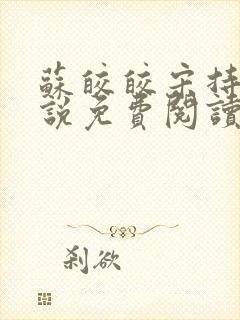 蘇皎皎宋持
說免費閱讀
剎欲